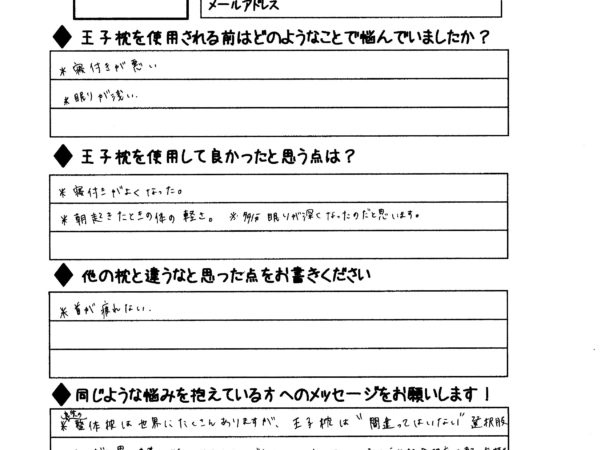 メールアドレス
◆ 王子枕を使用される前はどのようなことで悩んでいましたか？
※寝付きが悪い
※眠りが浅い.
◆ 王子枕を使用して良かったと思う点は？
※寝付きがよくなった。
※朝起きたときの体の軽さ。 ※多分 眠りが深くなったのだと思います。
◆ 他の枕と違うなと思った点をお書きください
※首が疲れない.
◆ 同じような悩みを抱えている方へのメッセージをお願いします！
※整体枕は世界にたくさんありますが、王子枕は"間違ってはいない"選択肢